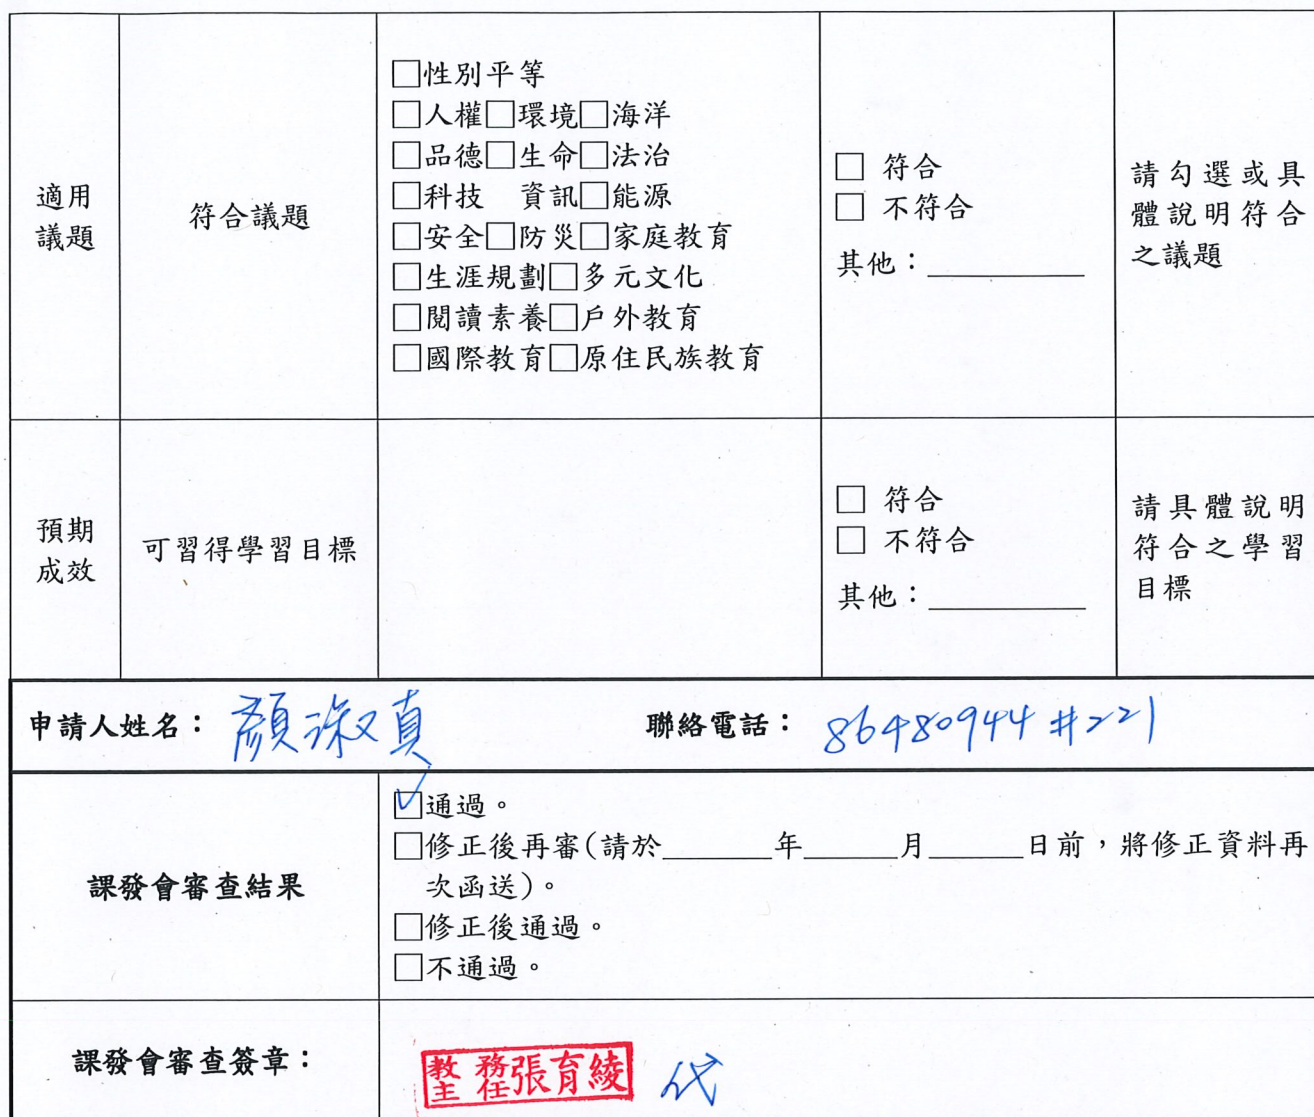 適用
議題
符合議題
□性別平等
□人權□環境□海洋
□品德□生命□法治
□科技 資訊□能源
□安全□防災□家庭教育
□生涯規劃□多元文化
□閱讀素養□戶外教育
□國際教育□原住民族教育
□ 符合
□ 不符合
其他：__________
請勾選或具
體說明符合
之議題
預期
成效
可習得學習目標
□ 符合
□ 不符合
其他：__________
請具體說明
符合之學習
目標
申請人姓名：顏淑真 聯絡電話：86480944 #221
課發會審查結果
☑通過。
□修正後再審(請於_______年______月______日前，將修正資料再
次函送)。
□修正後通過。
□不通過。
課發會審查簽章：
教務主任張育綾 代